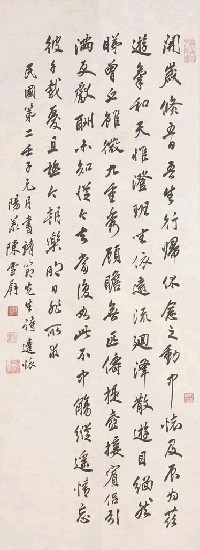 開歲倏五日吾生行歸休念之動中懷及辰為茲
遊氣和天惟澄班坐依遠流迴澤散遊目緬然
睇曾丘雖微九重秀顧瞻無匹儔提壺接賓侶引
滿更獻酬未知從今去當復如此不中觴縱遙情忘
彼千載憂且極今朝樂明日非所求
民國第二壬子元月書靖節先生詩遣懷
陽羨陳雲